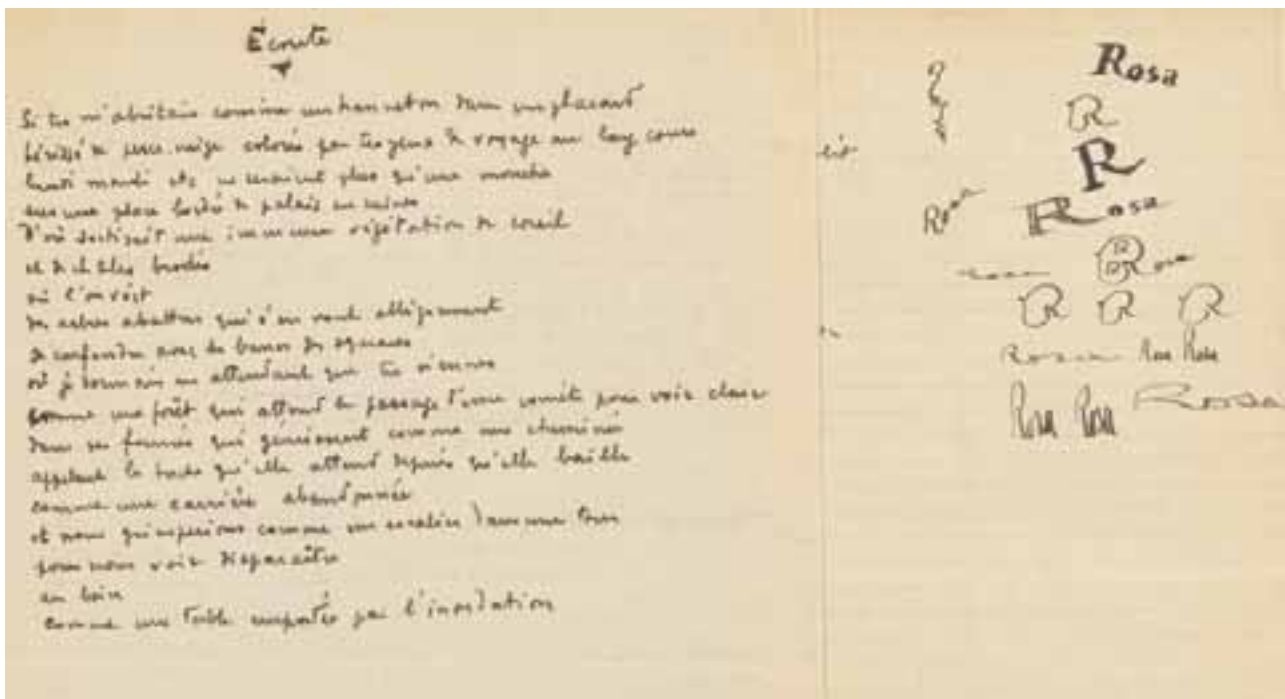 Écoute
Si tu m'abritais comme un hanneton dans un placard
hérissé de perce-neige colorés par tes yeux de voyage au long cours
lundi mardi etc ne seraient plus qu'une mouche
sur une place bordée de palais en ruines
d'où sortirait une immense végétation de corail
et de châles brodés
où l'on voit
des arbres abattus qui s'en vont obliquement
se confondre avec les bancs des squares
où je dormais en attendant que tu viennes
comme une forêt qui attend le passage d'une comète pour voir clair
dans ses fourrés qui gémissent comme une cheminée
appelant la bûche qu'elle attend depuis qu'elle bâille
comme une carrière abandonnée
et nous grimperions comme un escalier dans une tour
pour nous voir disparaître
au loin
comme une table emportée par l'inondation
Rosa
R
R
Rosa Rosa
Rosa Rosa
R R R
Rosa Rosa Rosa
Rosa Rosa Rosa